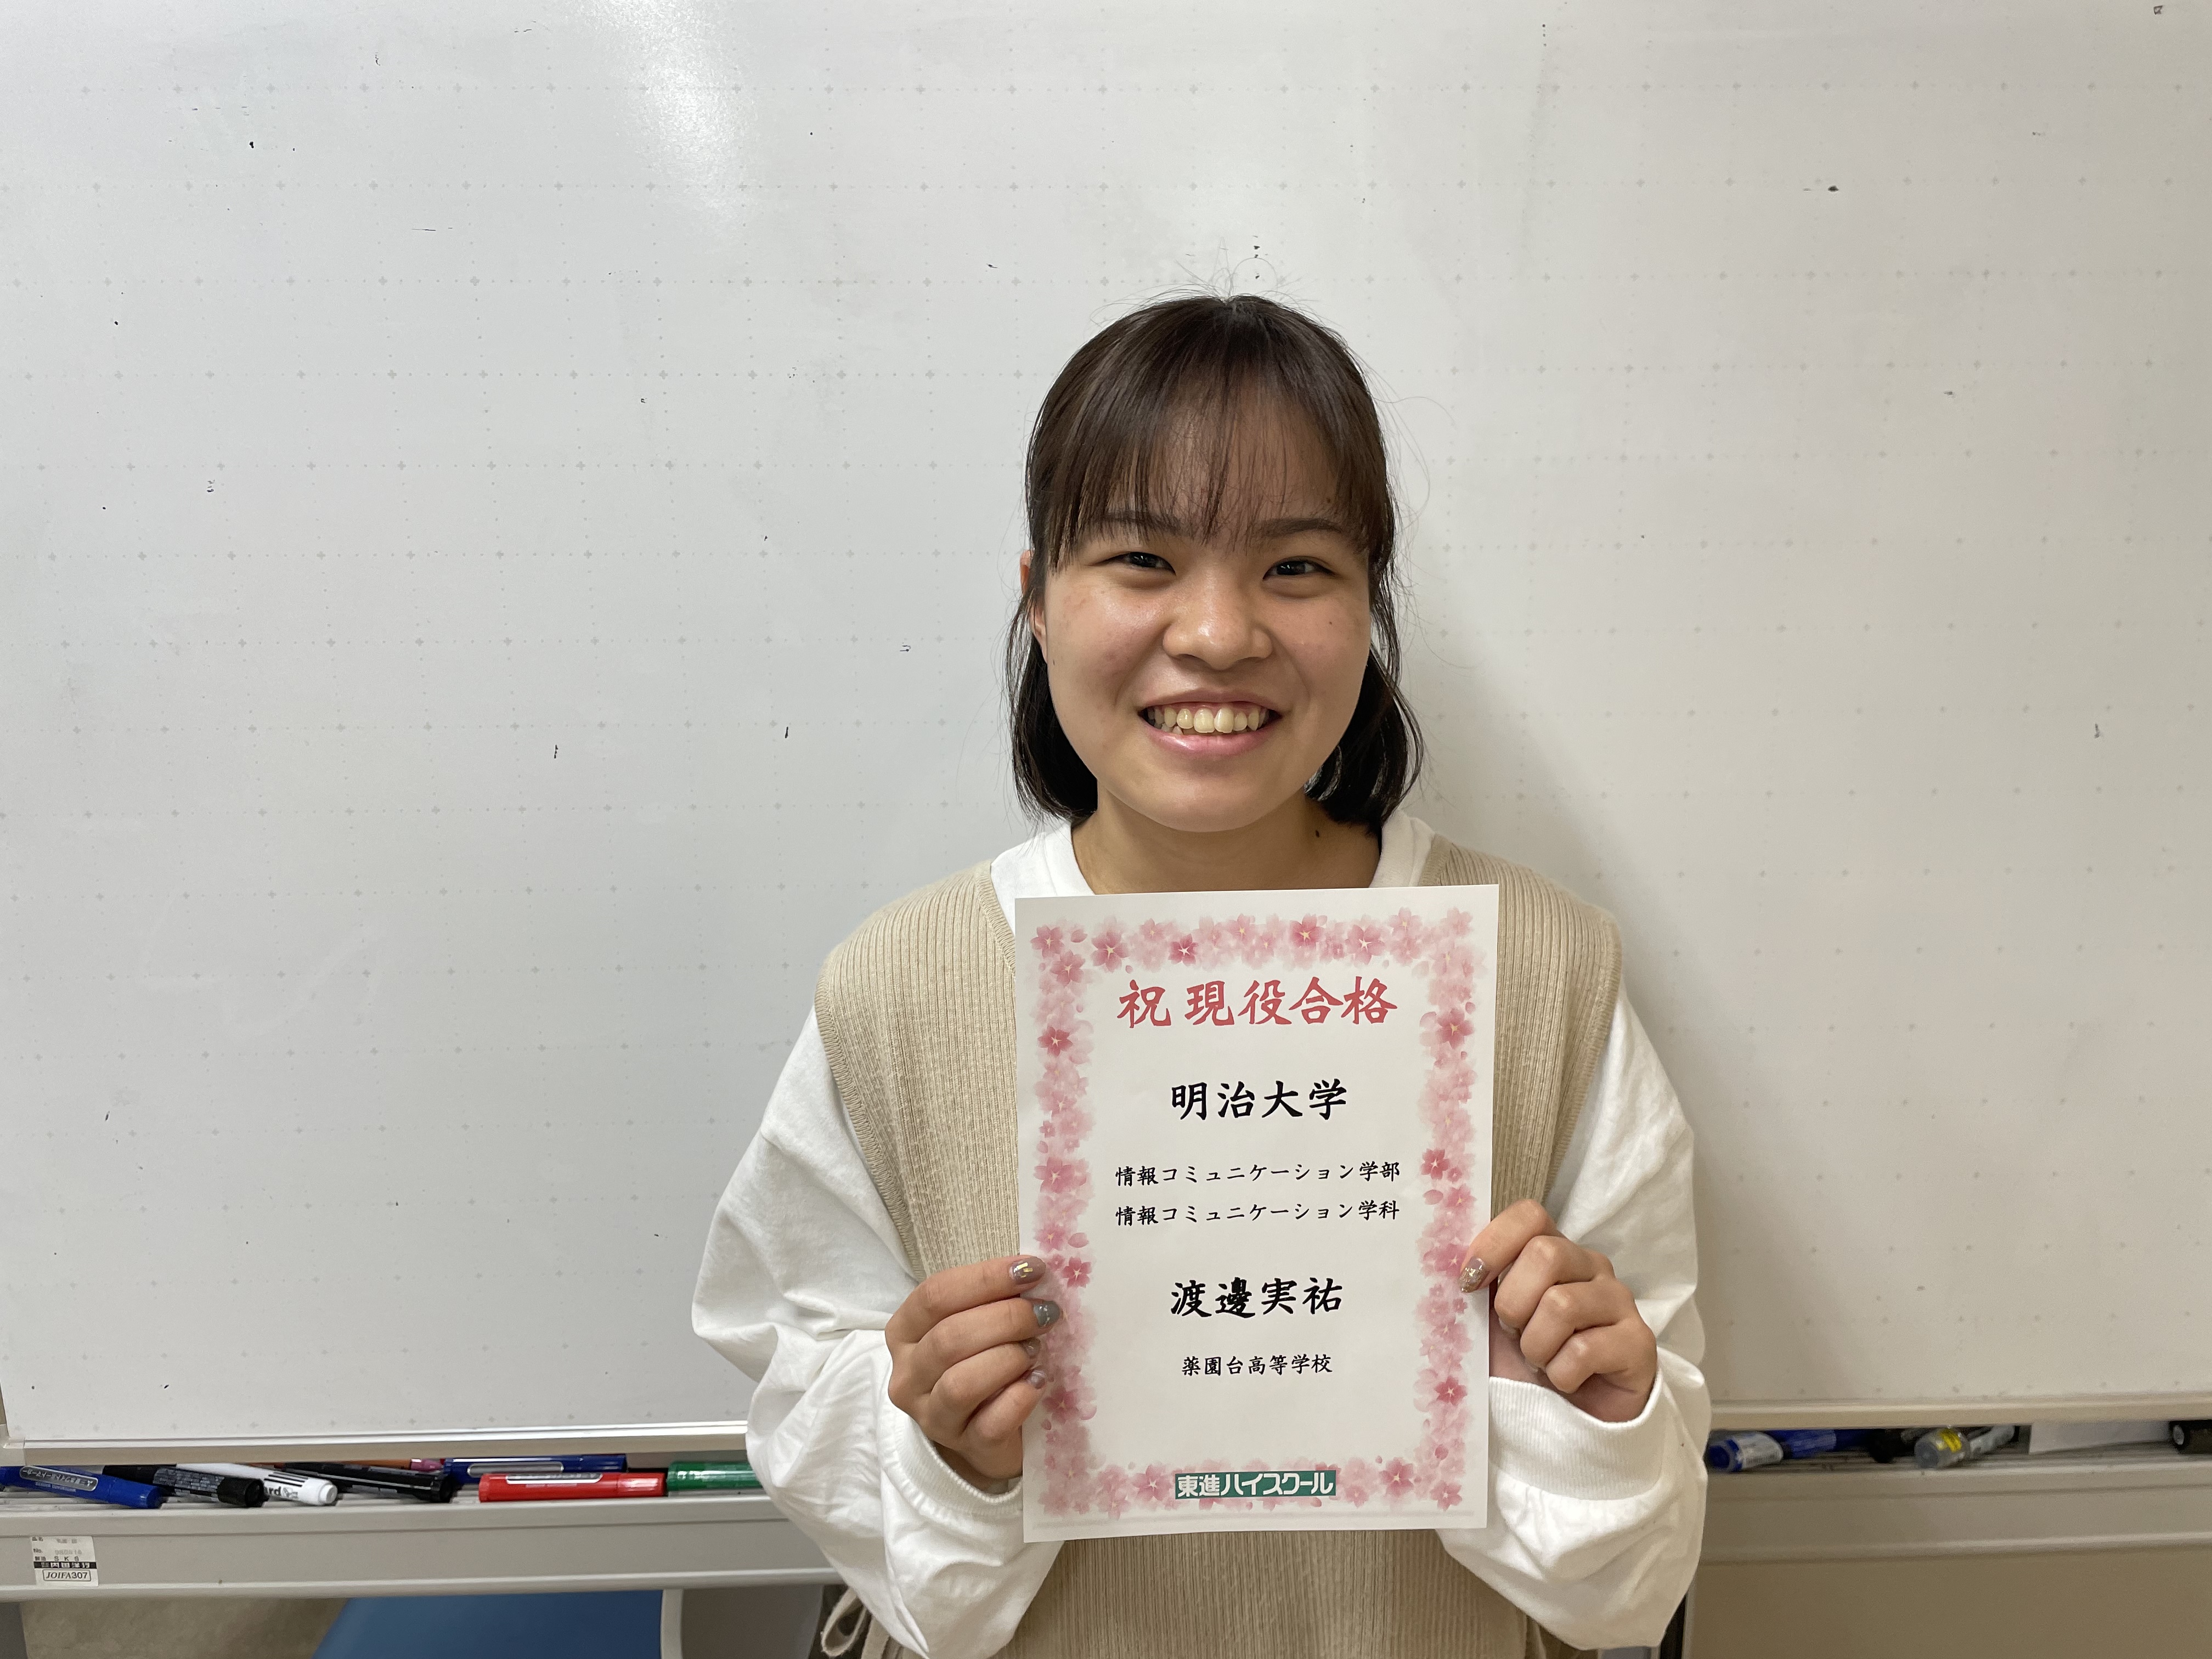 祝 現役合格
明治大学
情報コミュニケーション学部
情報コミュニケーション学科
渡邊実祐
薬園台高等学校
東進ハイスクール
JOIFA307